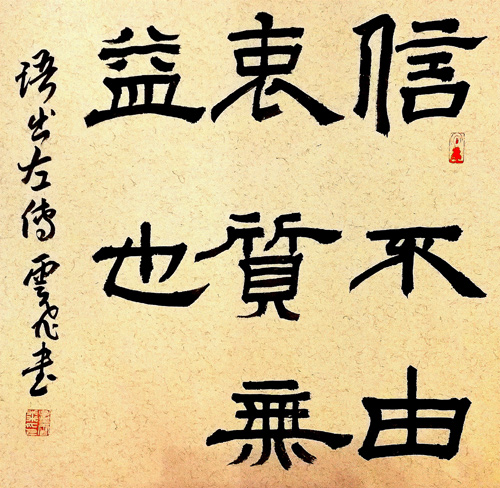 信不由
衷質無
益也
語出左傳雲飛書